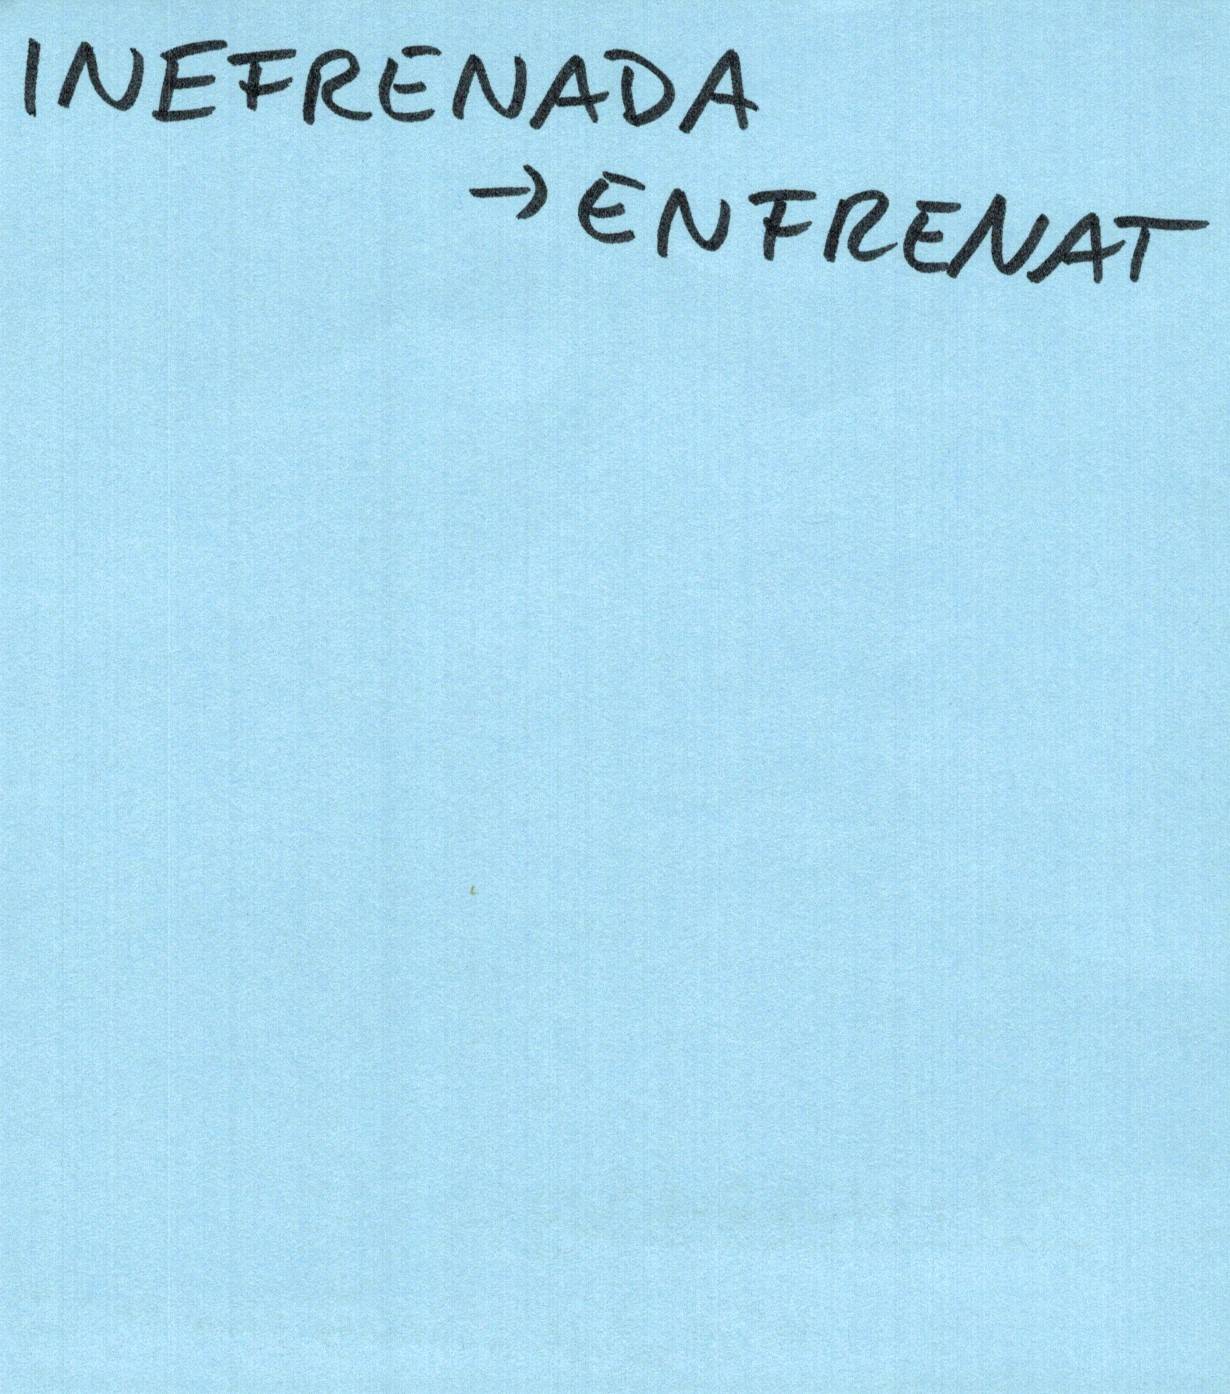 INEFRENADA
→ ENFRENAT